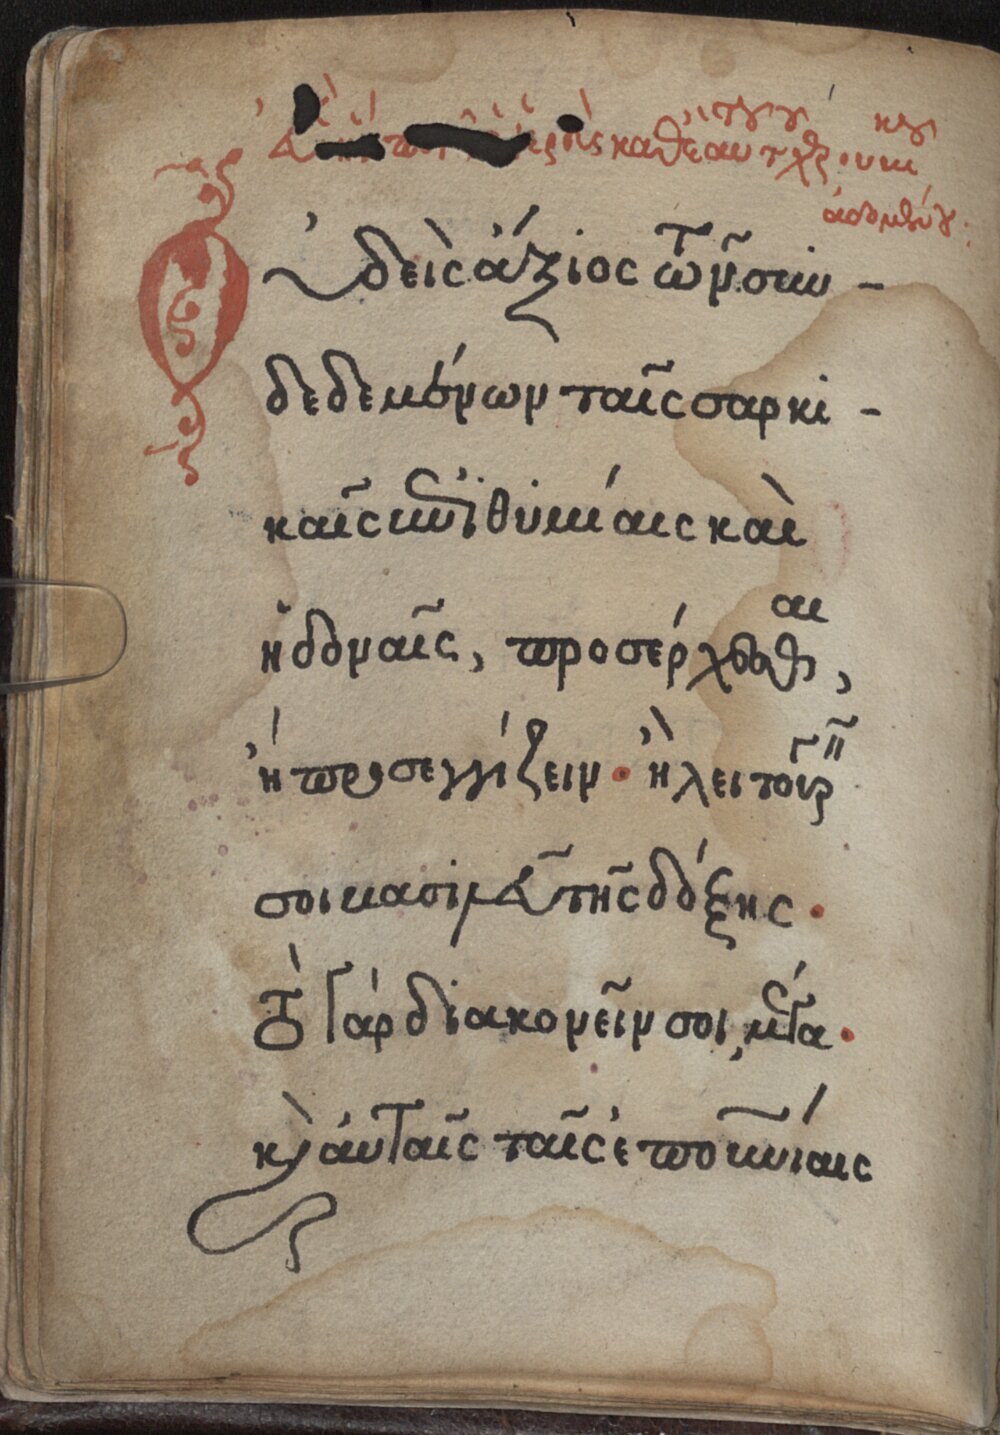 καθ ἑαυτ
Οὐδεὶς ἄξιος τῶν συν-
δεδεμένων ταῖς σαρκι-
καῖς ἐπιθυμίαις καὶ
ἡδοναῖς, προσέρχεσθαι,
ἢ προσεγγίζειν · ἢ λειτουργεῖν
σοι βασιλεῦ τῆς δόξης ·
τὸ γὰρ διακονεῖν σοι, μέγα ·
κ αὐταῖς ταῖς ἐπουνίαις